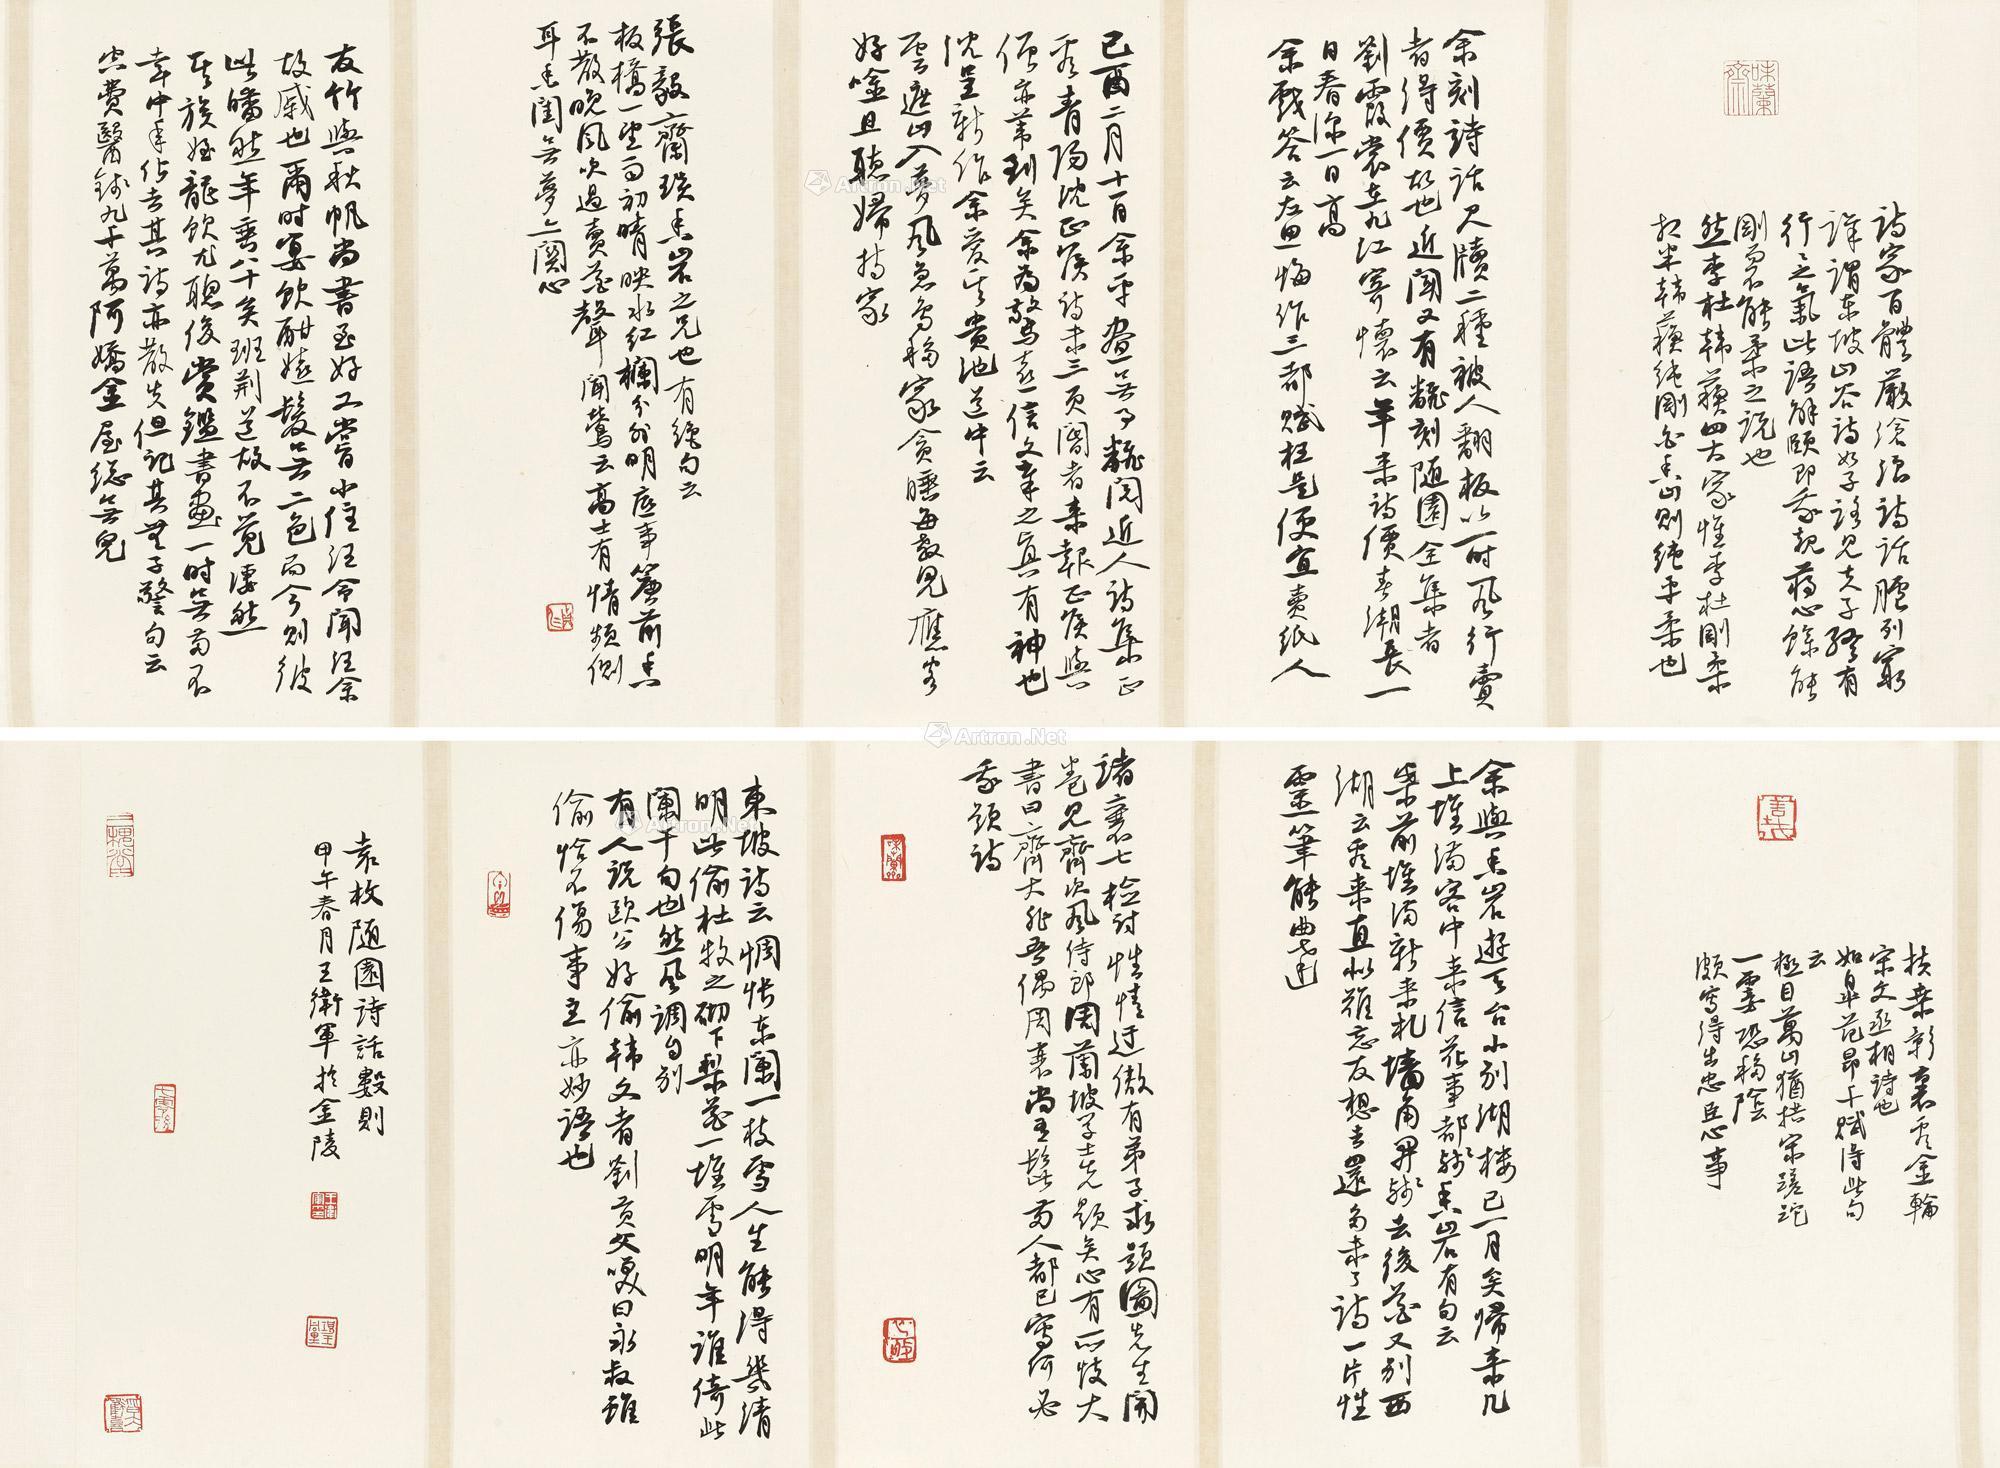 味蘭齋
詩家百體嚴滄浪詩話臚列窮
詳謂東坡山谷詩如子路見夫子終有
行行之氣此語解頤即我規蔣心餘能
剛而不能柔之說也
然李杜韓蘇四大家惟李杜剛柔
相半韓蘇純剛白香山則純乎柔也
余刻詩話尺牘二種被人翻板以一時風行賣
者得價故也近聞又有翻刻隨園全集者
劉霞裳在九江寄懷云年來詩價春潮長一
日春深一日高
余戲答云左思悔作三都賦枉是便宜賣紙人
己酉二月十一日余平晝無事翻閱近人詩集正
看青陽沈正侯詩未三頁閽者來報正侯與
偕亦葦到矣余為驚喜信文章之真有神也
沈呈新作余愛其貴池道中云
雲遮山入夢風急鳥移家貪睡每教兒應客
好吟且聽婦持家
張毅齋璞香岩之兄也有絕句云
板橋一望雨初晴映水紅欄分外明底事簷前香
不散晚風吹過賣花聲聞鶯云高士有情頻側
耳香閨無夢亦關心
友竹與秋帆尚書至好工書小住江令聞江余
故戚也爾時宴飲酣嬉髮無二色而今則彼
此皤然年垂八十矣班荊道故不覺淒然
其族姪龍飲尤聰俊賞鑑書畫一時無兩不
幸中年化去其詩亦散失但記其無子警句云
空費醫錢九千萬阿嬌金屋總無兒
扶桑影裏看金輪
宋文丞相詩也
如皋范昂千賦得此句
云
極目萬山猶拱宋蹉跎
一霎恐移陰
頗寫得出忠臣心事
余與香岩遊天台小別湖樓已一月矣歸來几
上堆滿客中來信花事都殘香岩有句云
案前堆滿新來札牆角開殘去後花又別西
湖云看來直似難忘友想去還多未了詩一片性
靈筆能曲達
諸襄七檢討性情迂傲有弟子求題圖先生開
卷見齊次風侍郎周蘭坡學士先題矣心有所忮大
書曰齊大非吾偶周衰尚有髭兩人都已寫何必
我題詩
味蘭
東坡詩云惆悵東闌一枝雪人生能得幾清
明此偷杜牧之砌下梨花一堆雪明年誰倚此
闌干句也然風調自別
有人說歐公好偷韓文者劉貢父笑曰永叔雖
偷恰不傷事主亦妙語也
袁枚隨園詩話數則
甲午春月王衛軍於金陵
Artron.Net
Artron.Net
Artron.Net
Artron.Net